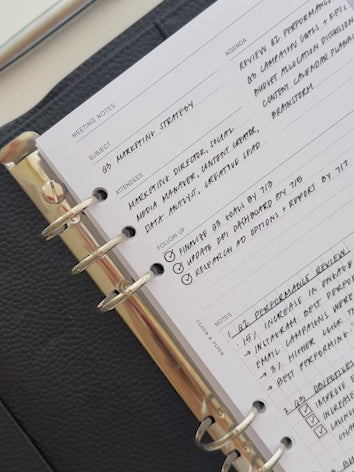 MEETING NOTES
SUBJECT
Q3 MARKETING STRATEGY
ATTENDEES
MARKETING DIRECTOR, SOCIAL
MEDIA MANAGER, CONTENT CREATOR,
DATA ANALYST, CREATIVE LEAD
AGENDA
REVIEW Q2 PERFORMANCE
Q3 CAMPAIGN GOALS + KPIS
BUDGET ALLOCATION DISCUSSION
CONTENT CALENDAR PLANNING
BRAINSTORM
FOLLOW UP
FINALIZE Q3 GOALS BY 7/3
UPDATE KPI DASHBOARD BY 7/5
RESEARCH AD OPTIONS + REPORT BY 7/7
CLOTH & PAPER
NOTES
Q2 PERFORMANCE REVIEW:
15% INCREASE IN
INSTAGRAM BEST
EMAIL CAMPAIGNS WERE
3% HIGHER CLICK
BEST PERFORMING
2. Q3 OBJECTIVES
IMPROVE
INCREASE